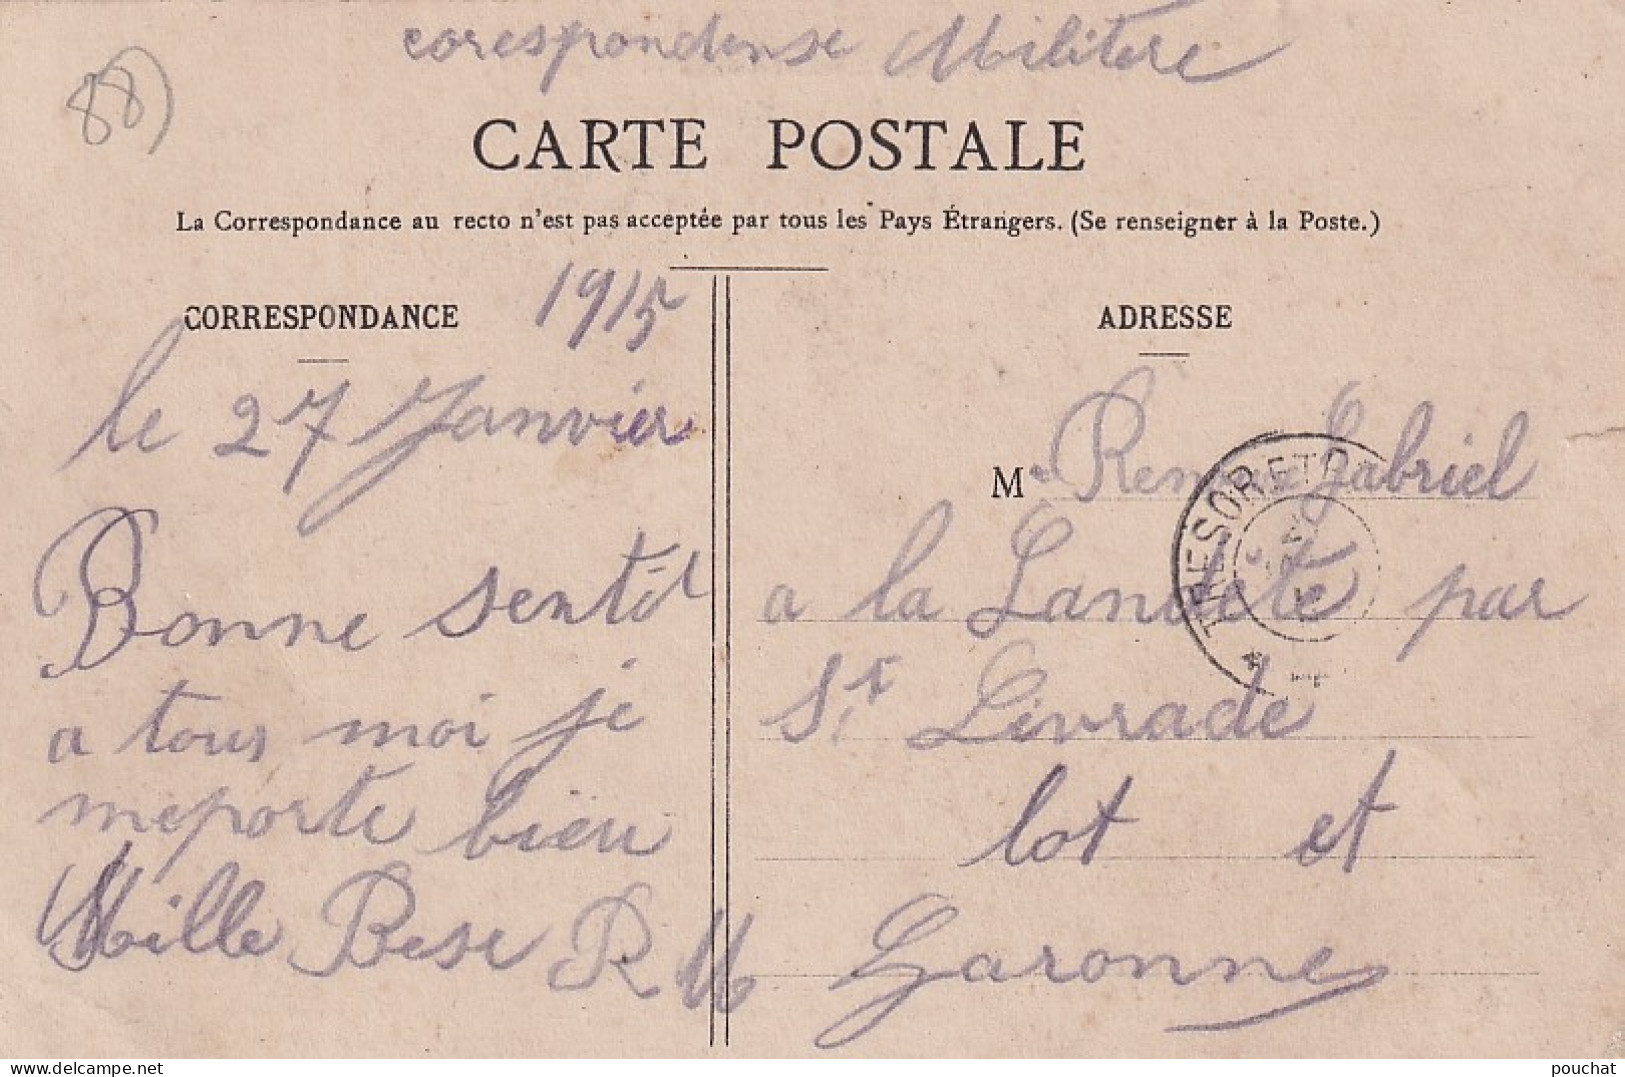 corespondense Militere
88)
CARTE POSTALE
La Correspondance au recto n'est pas acceptée par tous les Pays Étrangers. (Se renseigner à la Poste.)
CORRESPONDANCE
1915
le 27 Janvier
Bonne sentit
a tous moi je
meporte bien
Mille Bese R M
ADRESSE
M Gabriel
a la Landete par
St Livrade
lot et
Garonne
TRESOR ET
pouchat
delcampe.net